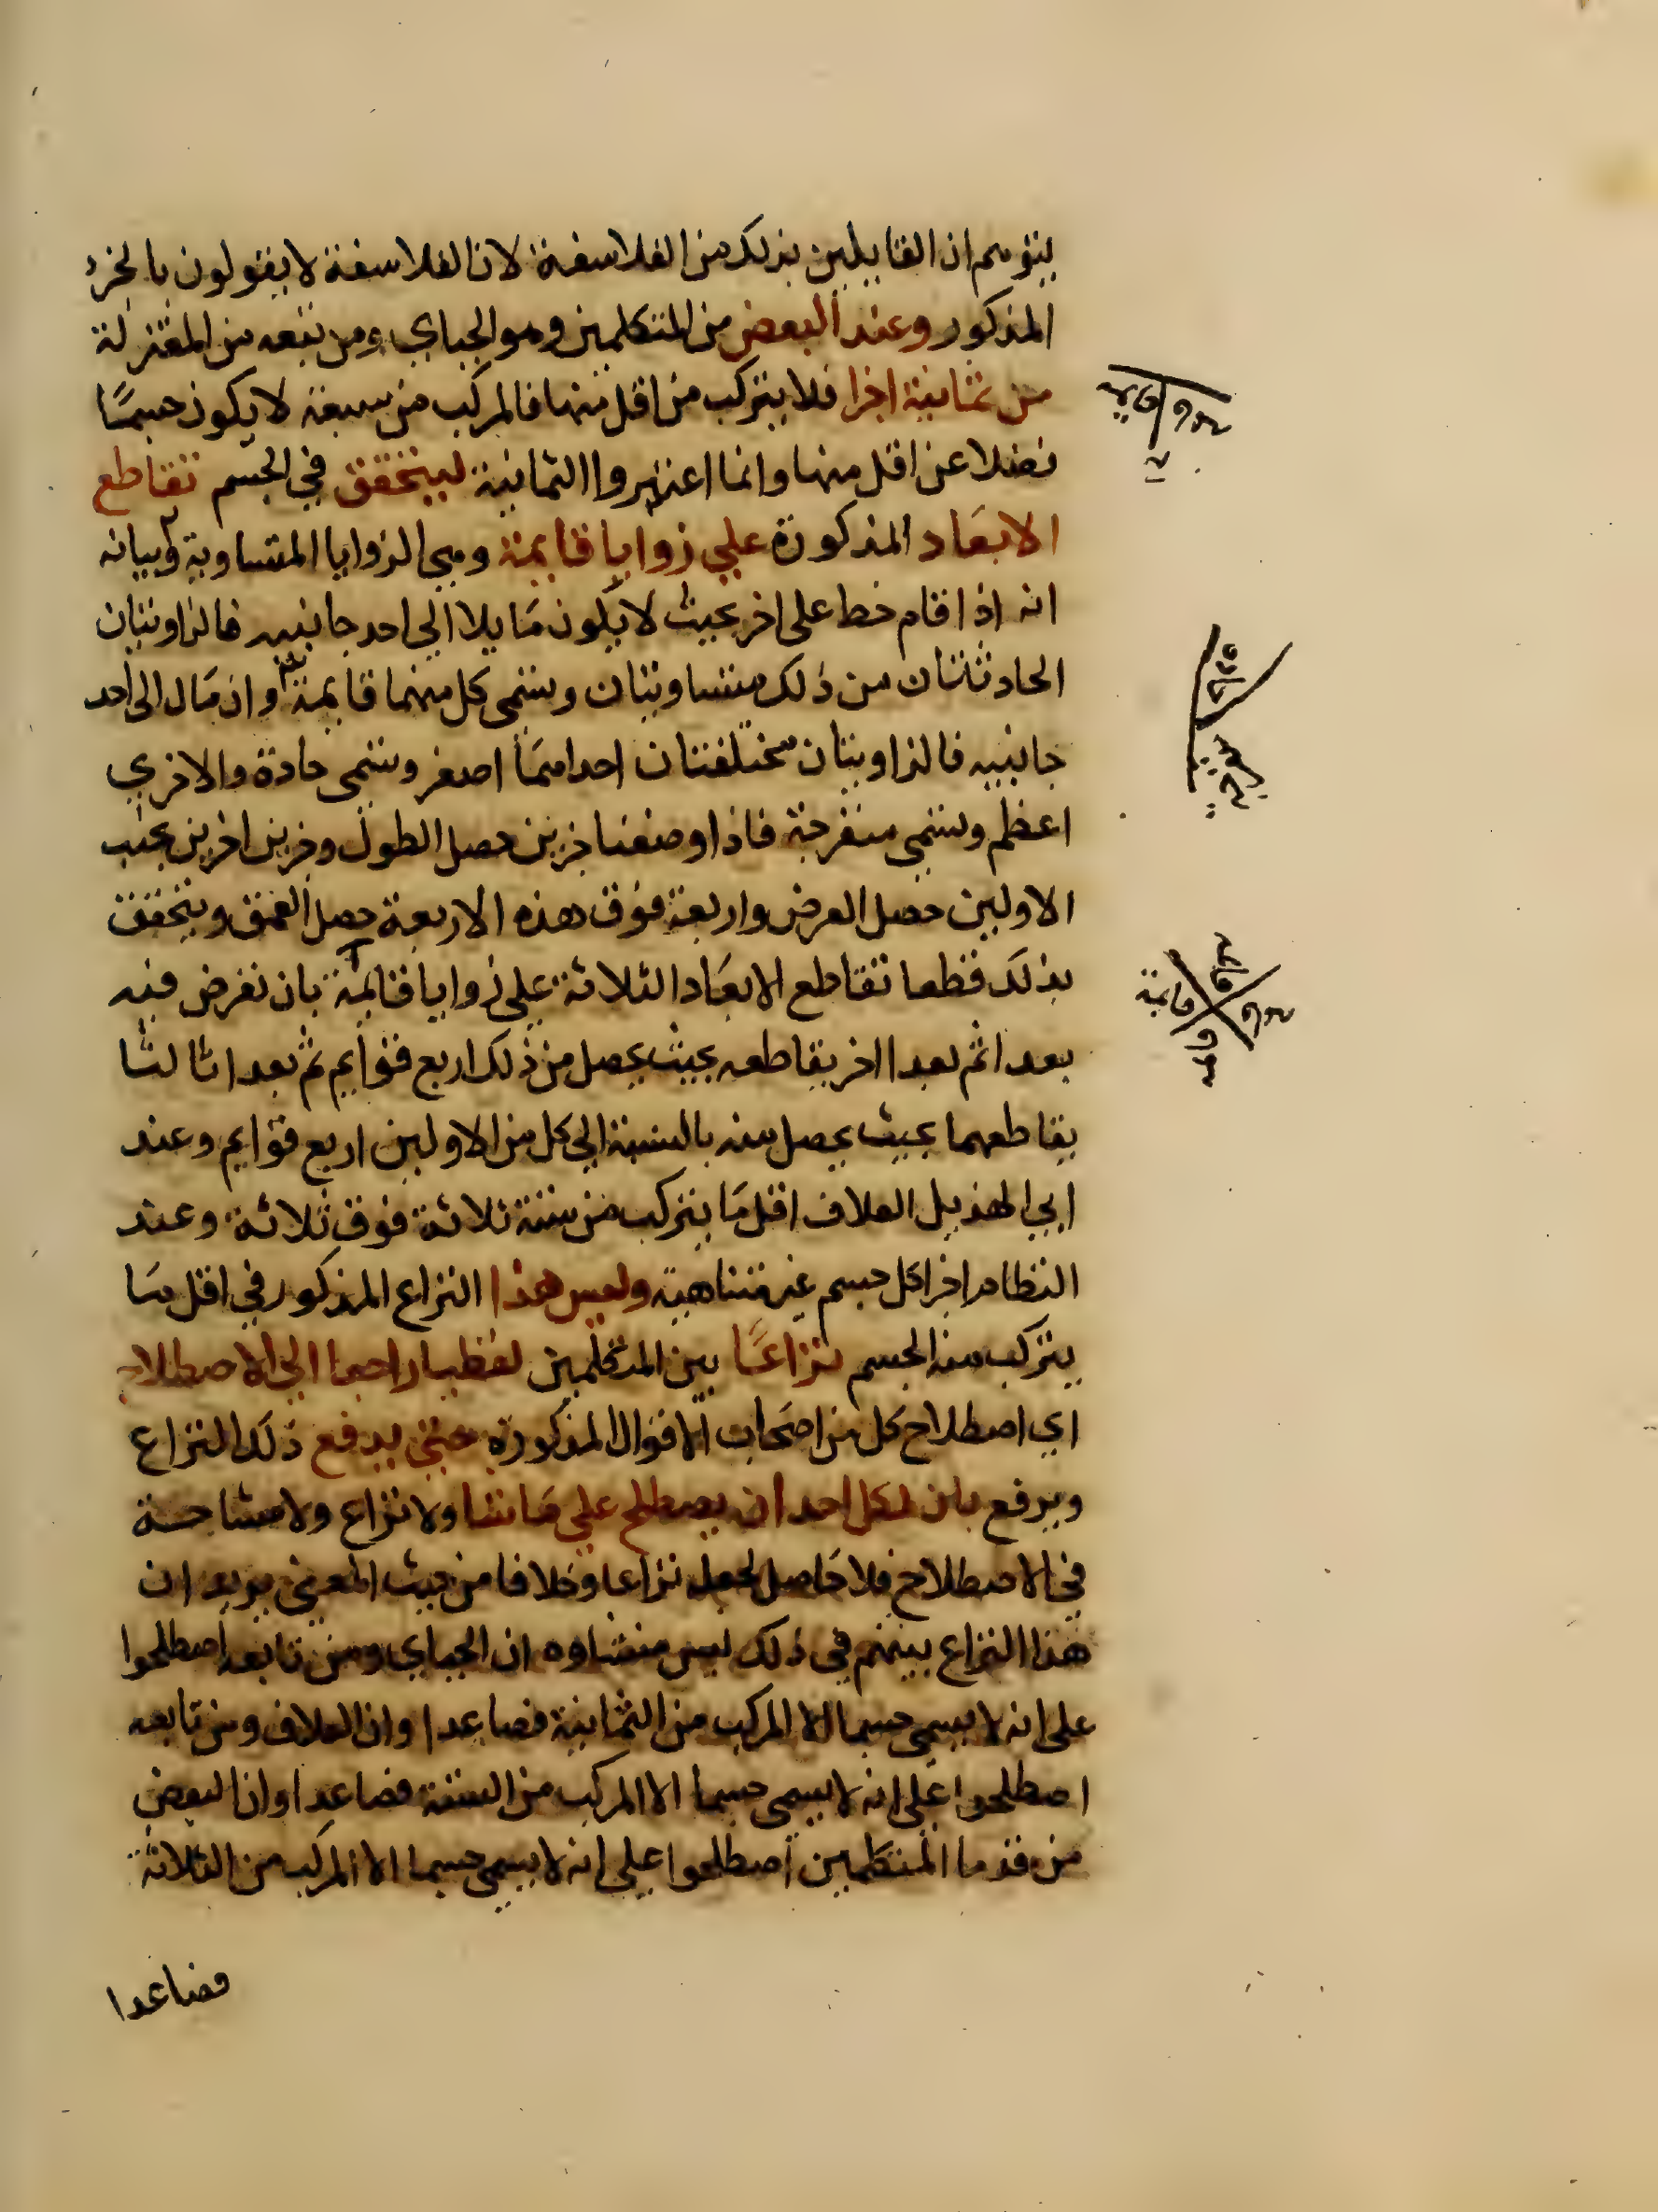 يتوهم ان القايلين بذلك من الفلاسفة لان الفلاسفة لا يقولون بالجزء
المذكور وعند البعض من المتكلمين وهو الجباي ومن تبعه من المعتزلة
من ثمانية اجزا فلا يتركب من اقل منها فالمركب من سبعة لا يكون جسمًا
فضلا عن اقل منها وانما اعتبروا الثمانية ليتحقق في الجسم تقاطع
الابعَاد المذكورة علي زوايا قايمة وهي الزوايا المتساوية وبيانه
انه اذا قام خط على اخر بحيث لا يكون مَايلا الي احد جانبيه فالزاويتان
الحادثتان من ذلك متساويتان وتسمى كل منهما قايمة وان مَال الى احد
جانبيه فالزاويتان مختلفتان احداهمَا اصغر وتسمى حادة والاخري
اعظم وتسمى منفرجة فاذا وضعنا جزين حصل الطول وجزين اخرين بجنب
الاولين حصل العرض واربعة فوق هذه الاربعة حصل العمق ويتحقق
بذلك قطعا تقاطع الابعَاد الثلاثة علي زوايا قايمَة بان نفرض فيه
بعدا ثم بعدا اخر يقاطعه بحيث يحصل من ذلك اربع قوايم ثم بعدا ثالثا
يقاطعهما بحيث يحصل منه بالنسبة الي كل من الاولين اربع قوايم وعند
ابي الهذيل العلاف اقل مَا يتركب من ستة ثلاثة فوق ثلاثة وعند
النظام اجزا كل جسم غير متناهية وليس هذا النزاع المذكور في اقل مَا
يتركب منه الجسم نزاعًا بين المتكلمين لفظيا راجعا الي الاصطلاح
اي اصطلاح كل من اصحَاب الاقوال المذكورة حتى يدفع ذلك النزاع
ويرفع بان لكل احد ان يصطلح علي مَا شا ولا نزاع ولا مشاحة
في الاصطلاح فلا حَاصل لجعله نزاعا وخلافا من حيث المعني يريد ان
هذا النزاع بينهم في ذلك ليس منشاوه ان الجباي ومن تابعه اصطلحوا
على انه لا يسمى جسما الا المركب من الثمانية فصاعدا وان العلاف ومن تابعه
اصطلحوا علي انه لا يسمى جسما الا المركب من الستة فصاعدا وان البعض
من قدما المتكلمين اصطلحوا علي انه لا يسمى جسما الا المركب من الثلاثة
فصاعدا
قايمة
قايمة
حادة
منفرجة
قايمة
قايمة
قايمة
قايمة